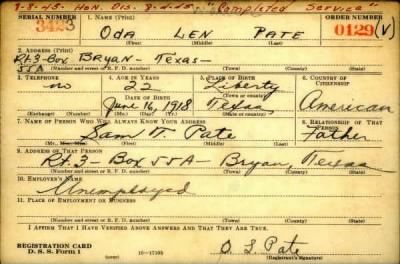 8-8-45- Hon. Dis. 8-2-45- "Completed Service"
SERIAL NUMBER 1. NAME (Print) ORDER NUMBER
3423 ODA LEN PATE 0129 (V)
(First) (Middle) (Last)
2. ADDRESS (Print)
Rt.3-Box BRYAN- TEXAS-
55A
(Number and street or R. F. D. number) (Town) (County) (State)
3. TELEPHONE 4. AGE IN YEARS 5. PLACE OF BIRTH 6. COUNTRY OF CITIZENSHIP
no 22 Liberty
DATE OF BIRTH (Town or county)
June 16, 1918 Texas American
(Mo.) (Day) (Yr.) (State or country)
7. NAME OF PERSON WHO WILL ALWAYS KNOW YOUR ADDRESS 8. RELATIONSHIP OF THAT PERSON
Sam Pate Father
(First) (Middle) (Last)
9. ADDRESS OF THAT PERSON
Rt. 3- Box 55A- Bryan, Texas
(Number and street or R. F. D. number) (Town) (County) (State)
10. EMPLOYER'S NAME
Unemployed
11. PLACE OF EMPLOYMENT OR BUSINESS
(Number and street or R. F. D. number) (Town) (County) (State)
I AFFIRM THAT I HAVE VERIFIED ABOVE ANSWERS AND THAT THEY ARE TRUE.
REGISTRATION CARD
D. S. S. Form 1 16-17105 O L Pate
(Registrant's signature)